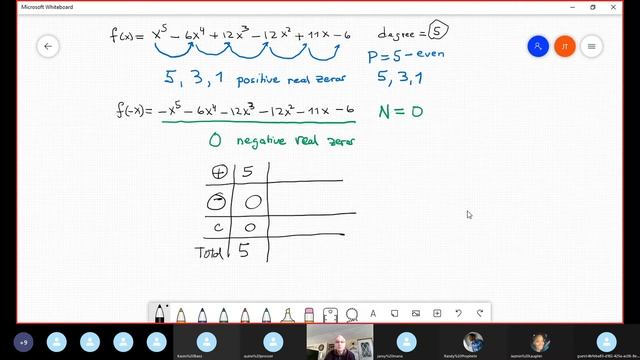 Microsoft Whiteboard
f(x) = x⁵ − 6x⁴ + 12x³ − 12x² + 11x − 6 degree = 5
P = 5 − even
5, 3, 1 positive real zeros 5, 3, 1
f(-x) = −x⁵ − 6x⁴ − 12x³ − 12x² − 11x − 6 N = 0
0 negative real zeros
+ 5
− 0
C 0
Total 5
+9